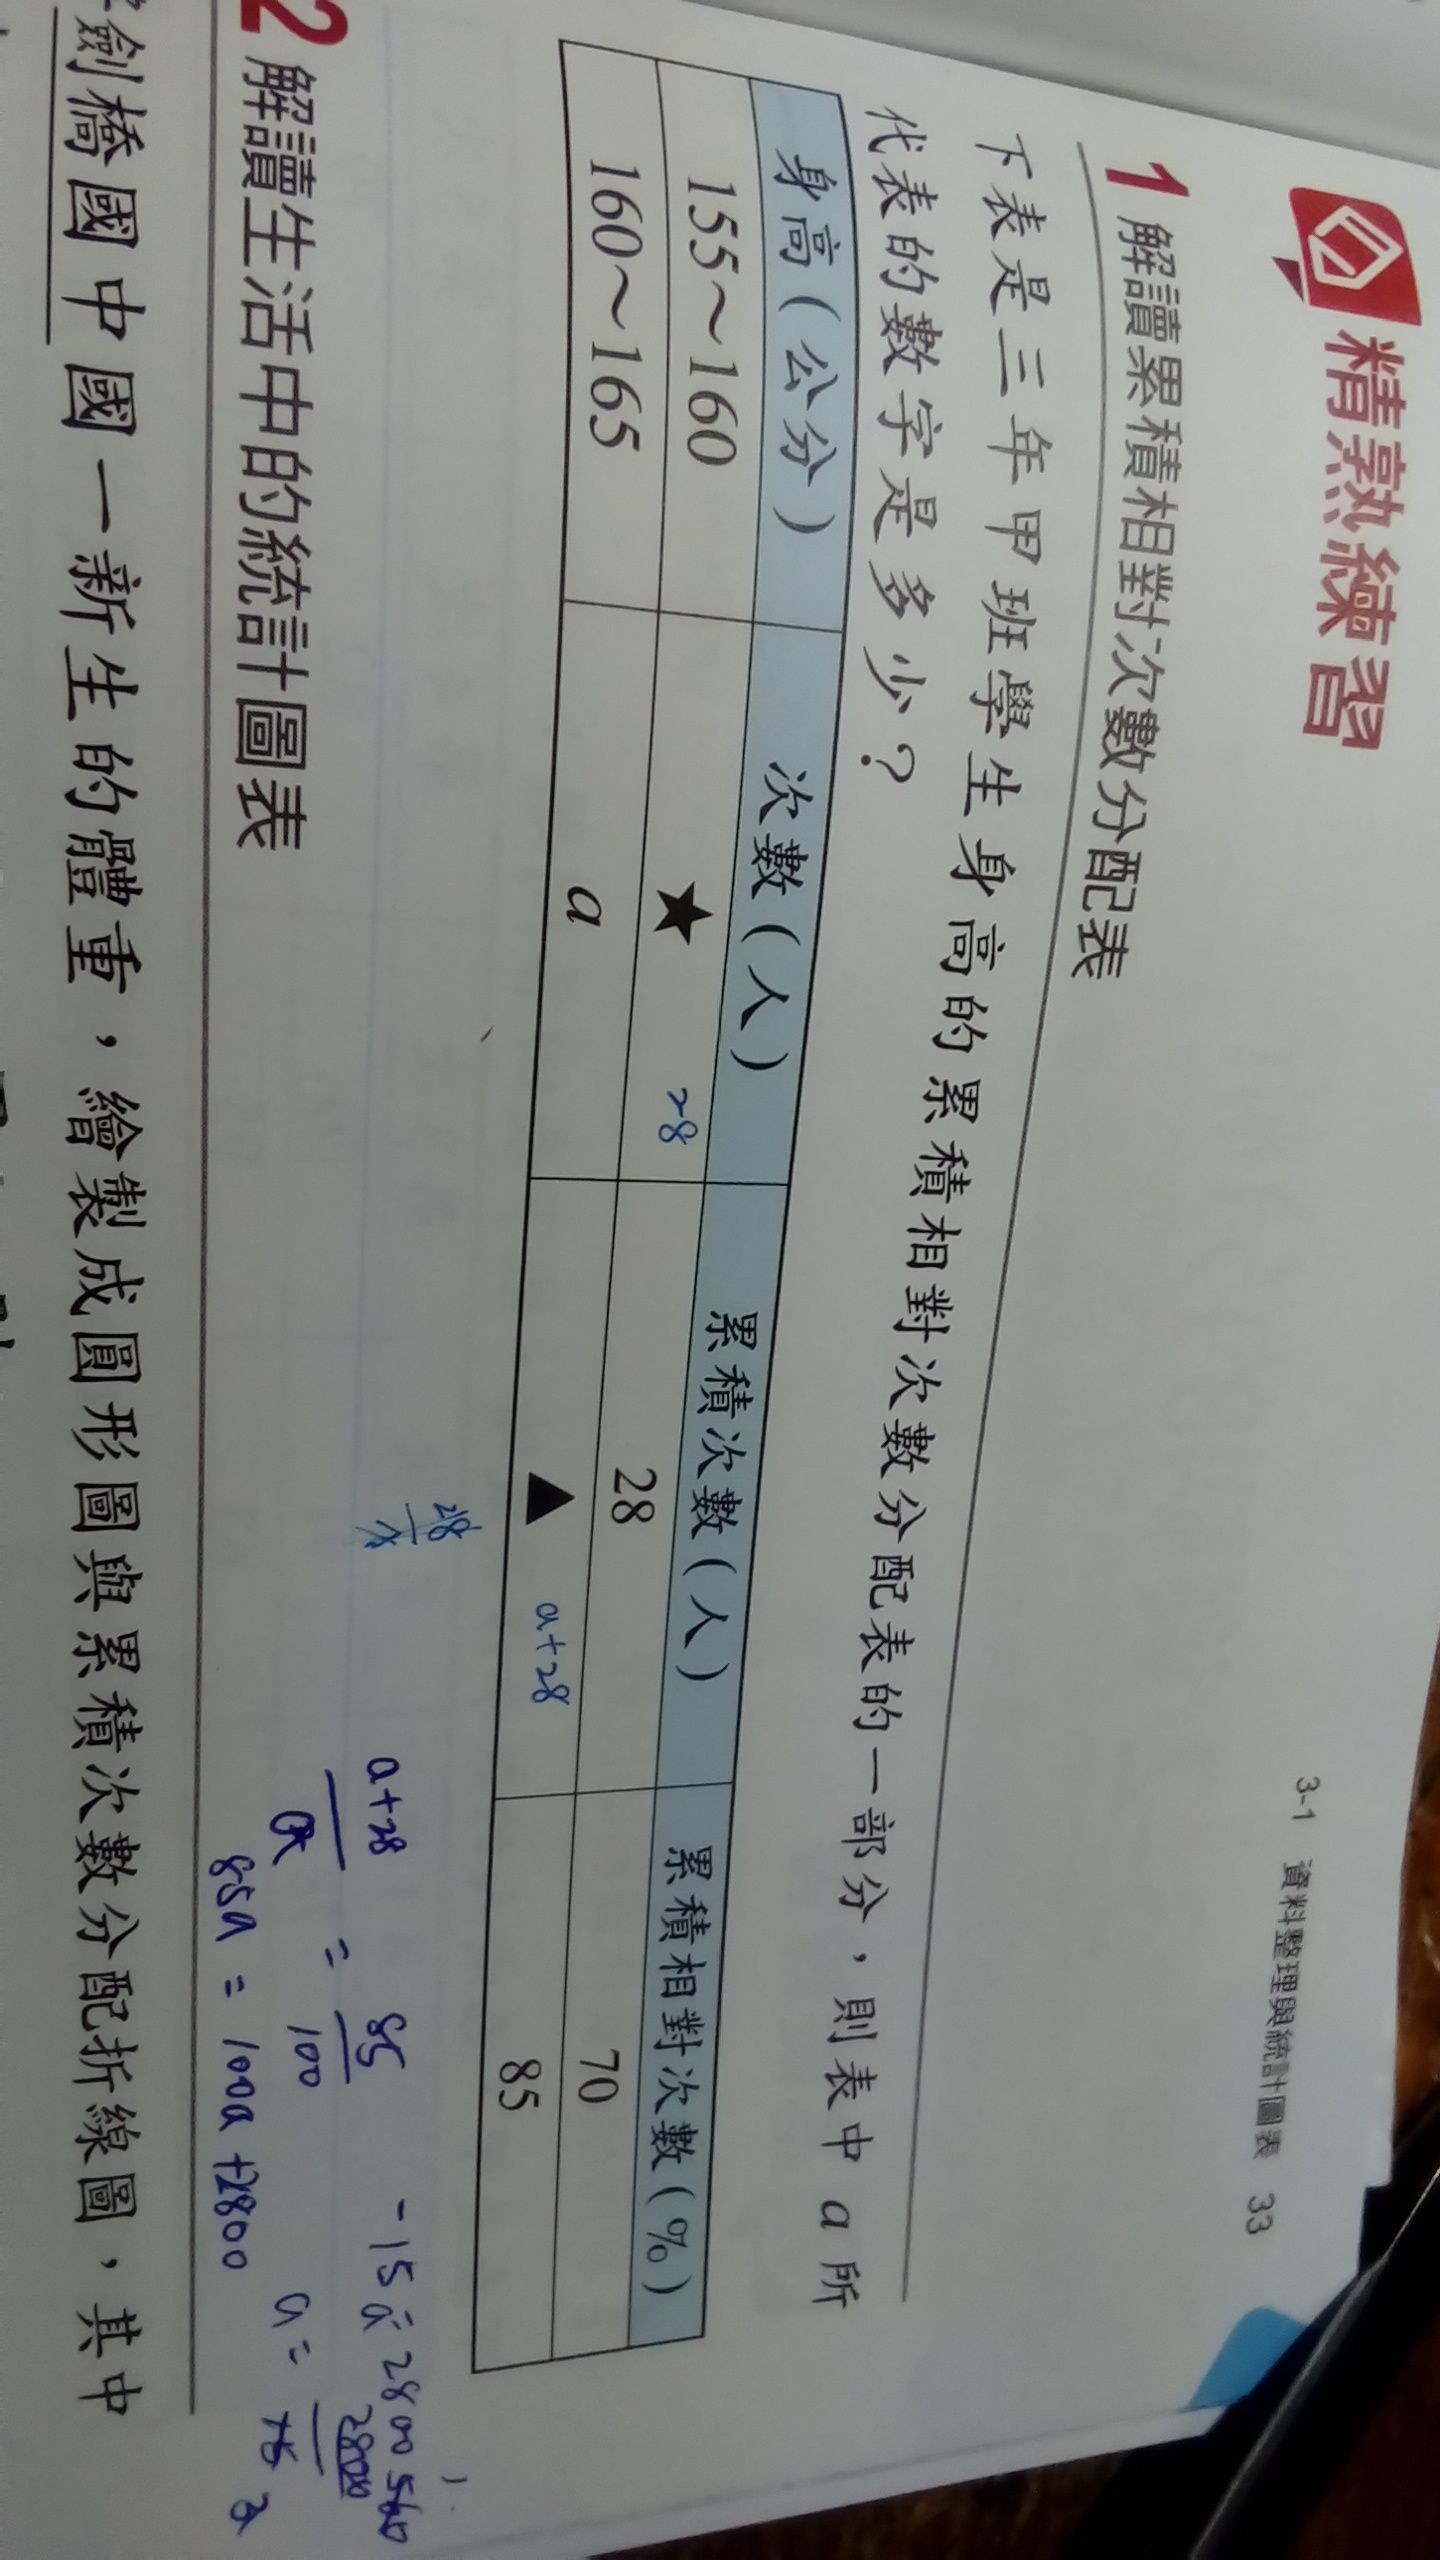 3-1 資料整理與統計圖表 33
精熟練習
1 解讀累積相對次數分配表
下表是三年甲班學生身高的累積相對次數分配表的一部分，則表中 a 所
代表的數字是多少？
身高(公分) 次數(人) 累積次數(人) 累積相對次數(%)
155～160 ★ 28 28 70
160～165 a ▲ a+28 85
28
a+28
= 85
100
85a = 100a +2800
-15a = 2800
a =
2 解讀生活中的統計圖表
劍橋國中國一新生的體重，繪製成圓形圖與累積次數分配折線圖，其中